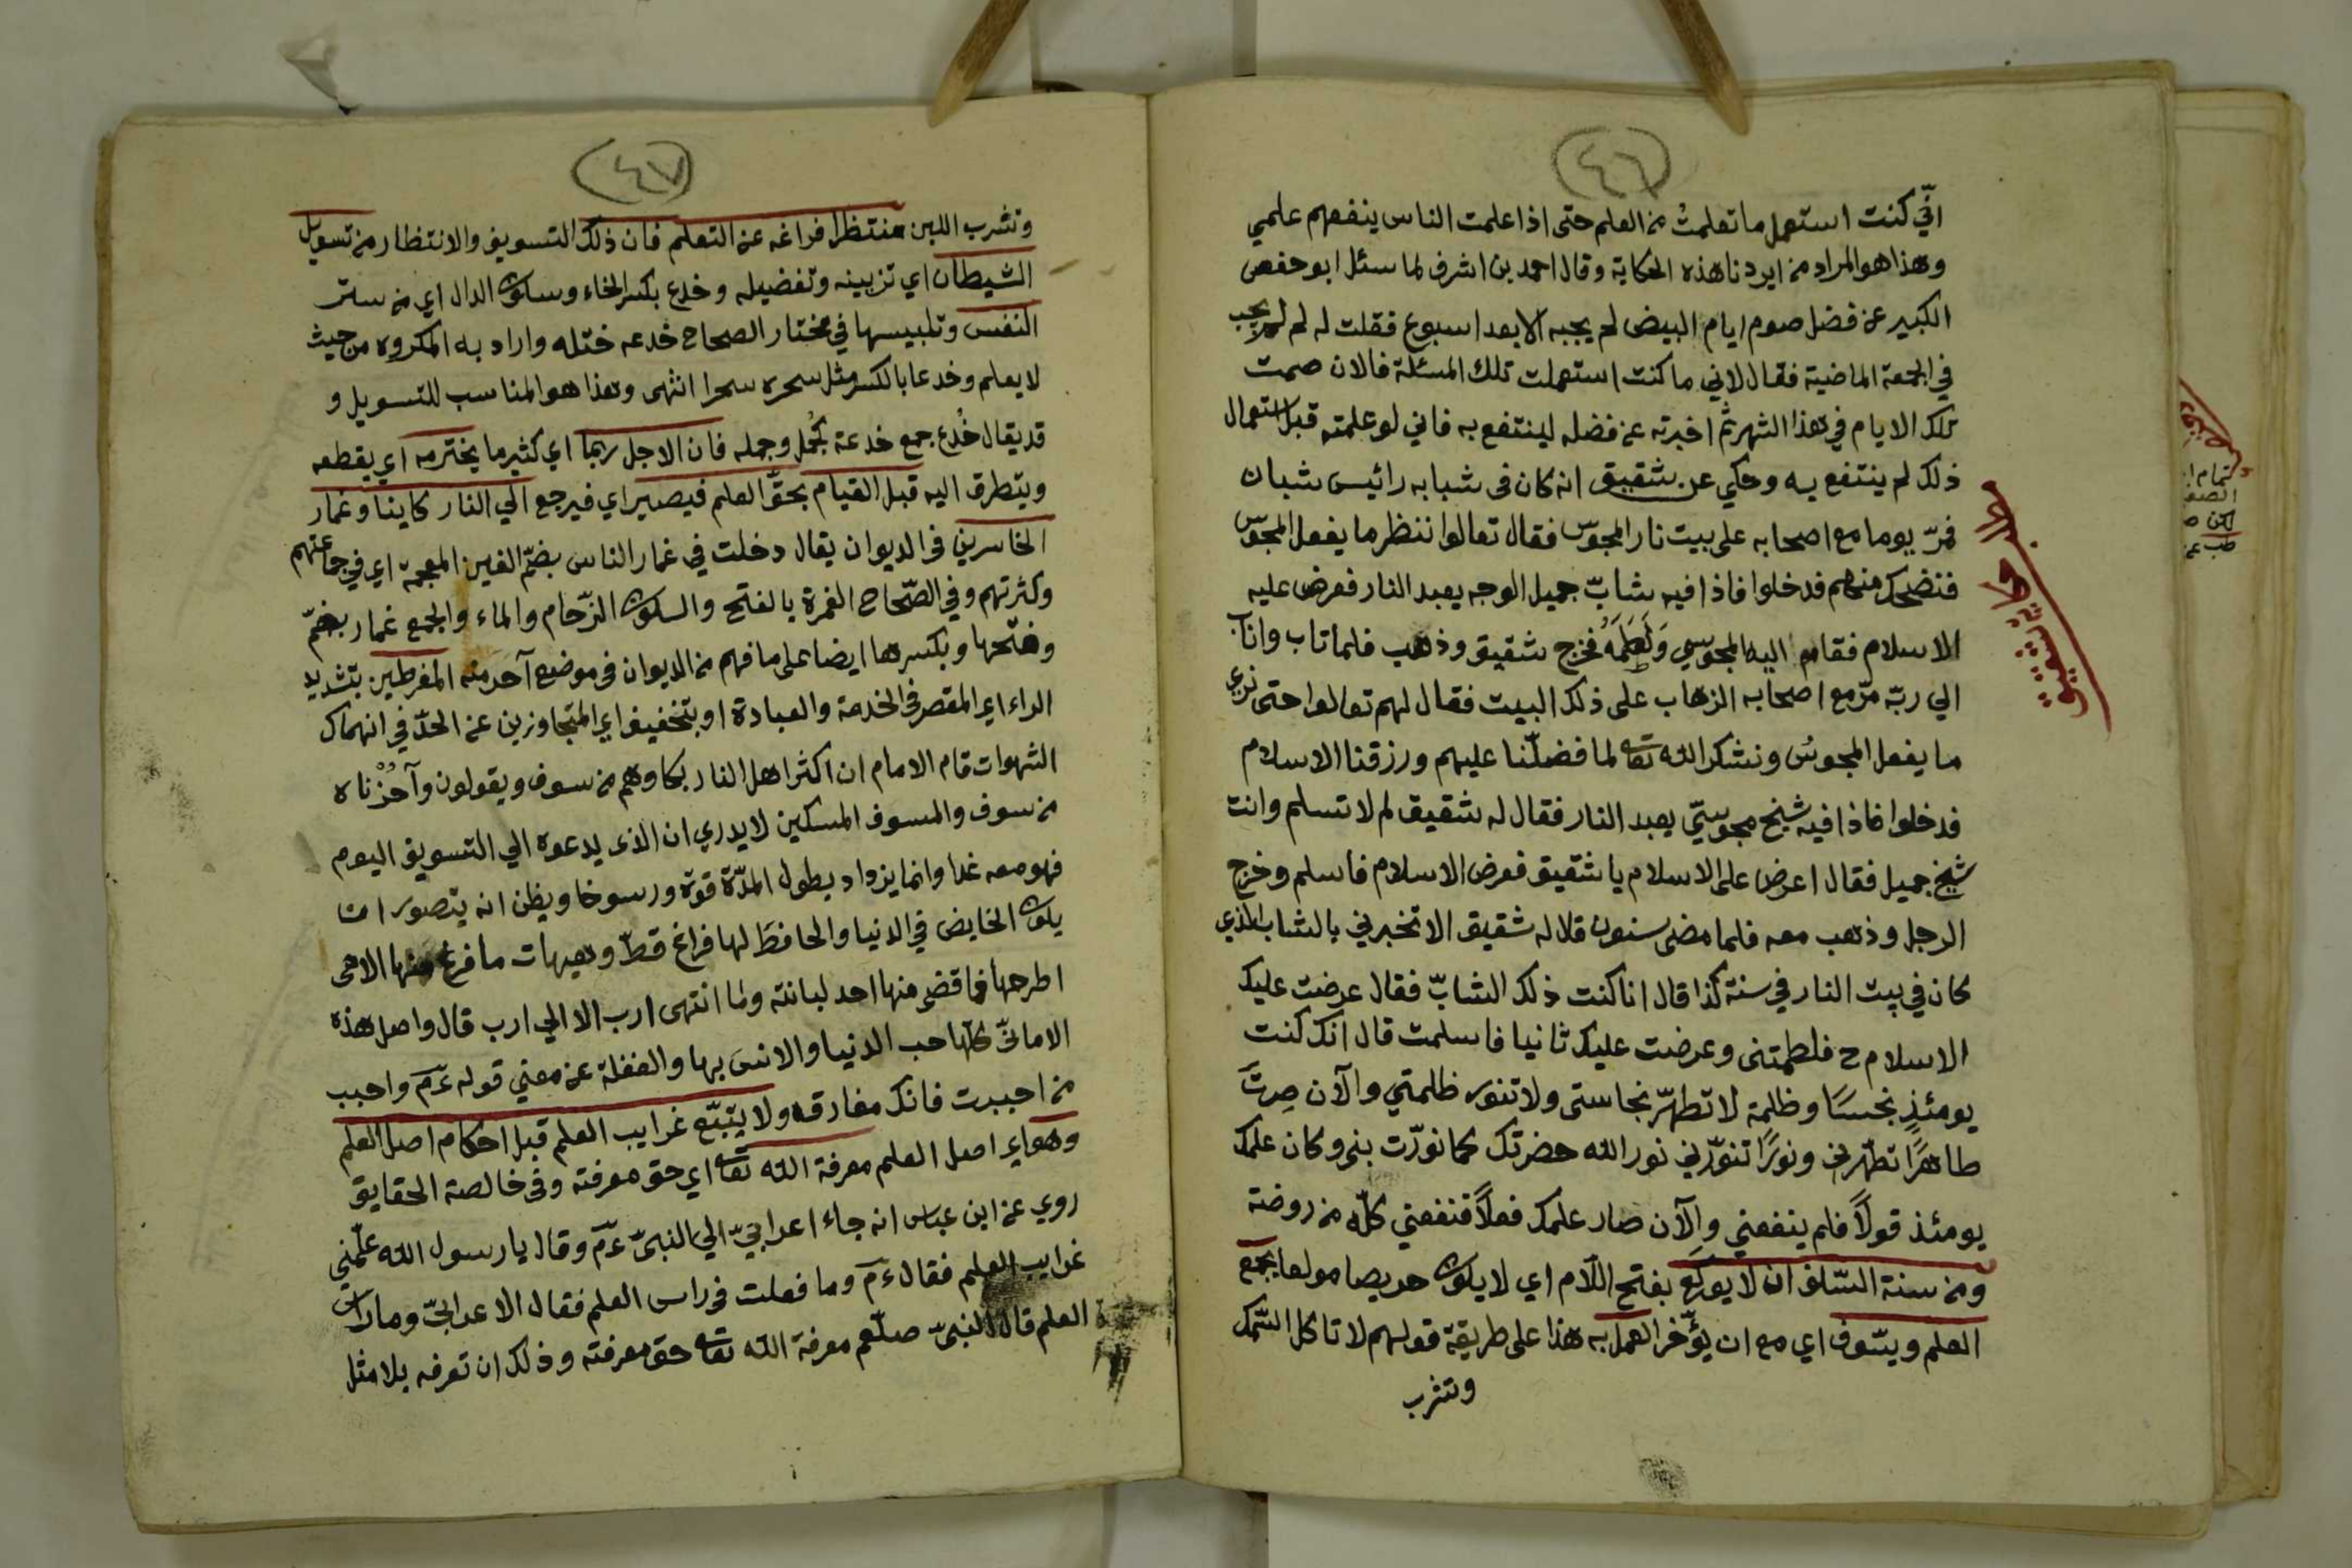 ٤٦
انّي كنت استعمل ما تعلمتُ من العلم حتى اذا علمت الناس ينفعهم علمي
وهذا هو المراد من ايردنا هذه الحكاية وقال احمد بن اشرف لما سئل ابو حفص
الكبير عن فضل صوم ايام البيض لم يجبه الا بعد اسبوع فقلت له لم لم يجب
في الجمعة الماضية فقال لاني ما كنت استعملت تلك المسئلة فالان صمت
تلك الايام في هذا الشهر ثم اخبرته عن فضله لينتفع به فاني لو علمته قبل استعمال
ذلك لم ينتفع به وحكي عن شقيق انه كان في شبابه رائيس شبان
فمرّ يوما مع اصحابه على بيت نار المجوس فقال تعالوا ننظر ما يفعل المجوس
فنضحك منهم فدخلوا فاذا فيه شابّ جميل الوجه يعبد النار فعرض عليه
الاسلام فقام اليه المجوسي وَلَطَمَهُ فخرج شقيق وذهب فلما تاب واناب
الي ربّه مرّ مع اصحابه الزهاب على ذلك البيت فقال لهم تعالوا حتى نرى
ما يفعل المجوسُ ونشكر الله تعا لما فضلّنا عليهم ورزقنا الاسلام
فدخلوا فاذا فيه شيخ مجوسيّ يعبد النار فقال له شقيق لم لا تسلم وانت
شيخ جميل فقال اعرض على الاسلام يا شقيق فعرض الاسلام فاسلم وخرج
الرجل وذهب معه فلما مضى سنون قلا له شقيق الا تخبرني بالشاب الذي
كان في بيت النار في سنة كذا قال انا كنت ذلك الشابّ فقال عرضت عليك
الاسلام ح فلطمتنى وعرضت عليك ثانيا فاسلمت قال انك كنت
يومئذٍ نجسًا وظلمة لا تطهّر نجاستى ولا تنور ظلمتي والآن صِرتَ
طاهرًا تطهّرني ونورًا تنوّرني نور الله حضرتك كما نورّت بنى وكان علمك
يومئذ قولاً فلم ينفعني والآن صار علمك فعلاً فنفعني كلّه من روضة
ومن سنة السّلف ان لا يولَع بفتح اللام اي لا يكون حريصا مولعا بجمع
العلم ويسّوف اي مع ان يؤّخر العمل به هذا على طريقة قولهم لا تاكل السّمك
وتشرب
حكاية شقيق
٤٧
وتشرب اللبن منتظرا فراغه عن التعلم فان ذلك التسويف والانتظار من تسويل
الشيطان اي تزيينه وتفضيله وخدع بكسر الخاء وسكون الدال اي من ستر
النفس وتلبيسها في مختار الصحاح خدعه ختله واراد به المكروه من حيث
لا يعلم وخدعا بالكسر مثل سحره سحرا انتهى وهذا هو المناسب للتسويل و
قد يقال خُدع جمع خدعة كجُمل وجمله فان الاجل ربما اي كثير ما يخترمه اي يقطعه
ويتطرق اليه قبل القيام بحقّ العلم فيصير اي فيرجع الي النار كاينا وغمار
الخاسرين في الديوان يقال دخلت في غمار الناس بضمّ الغين المعجمة اي في جماعتهم
وكثرتهم وفي الصّحاح الغمرة بالفتح والسكون الزّحام والماء والجمع غمار بضمّ
وفتحها وبكسرها ايضا على ما فهم من الديوان في موضع آخر منه المفرطين بتشديد
الراء اي المقصر في الخدمة والعبادة او بتخفيف اي المتجاوزين عن الحدّ في انهماك
الشهوات قام الامام ان اكثر اهل النار بكاوهم من سوف ويقولون وآحُزْناه
من سوف والمسوف المسكين لا يدري ان الذى يدعوه الي التسويق اليوم
فهو معه غدا وانما يزداد بطول المدّة قوة ورسوخا ويظن انه يتصور ان
يكون الخايض في الدنيا والحافظ لها فراغ قطّ وهيهات ما فرغ منها الا من
اطرحها فما قضى منها احد لبانته ولما انتهى ارب الا الي ارب قال واصل هذه
الامانّي كلّها حب الدنيا والانس بها والغفلة عن معني قوله عم واحبب
من احببت فانك مفارقه ولا يتبّع غرايب العلم قبل احكام اصل العلم
وهو اي اصل العلم معرفة الله تعا اي حق معرفته وفى خالصة الحقايق
روي عن ابن عباس انه جاء اعرابيّ الي النبيّ عم وقال يا رسول الله علّمني
غرايب العلم فقال عم وما فعلت في راس العلم فقال الاعرابيّ وما راس
العلم قال النبيّ صلّعم معرفة الله تعا حق معرفته وذلك ان تعرفه بلا مثل